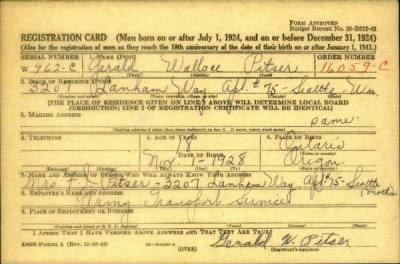 FORM APPROVED
REGISTRATION CARD (Men born on or after July 1, 1924, and on or before December 31, 1924)
(Also for the registration of men as they reach the 18th anniversary of the date of their birth on or after January 1, 1943.)
SERIAL NUMBER 1. NAME (Print) ORDER NUMBER
W 962-C Gerald Wallace Pitser 16059-C
(First) (Middle) (Last)
2. PLACE OF RESIDENCE (Print)
3207 Lanham Way Apt. #75 - Seattle
[THE PLACE OF RESIDENCE GIVEN ON LINE 2 ABOVE WILL DETERMINE LOCAL BOARD
JURISDICTION; LINE 2 OF REGISTRATION CERTIFICATE WILL BE IDENTICAL]
3. MAILING ADDRESS
same
4. TELEPHONE 5. AGE IN YEARS 6. PLACE OF BIRTH
18 Ontario
DATE OF BIRTH
Nov. 1 - 1928 Oregon
7. NAME AND ADDRESS OF PERSON WHO WILL ALWAYS KNOW YOUR ADDRESS
Mrs. Pitser - 3207 Lanham Way Apt 75 - Seattle
8. EMPLOYER'S NAME AND ADDRESS
Army Transport Service
9. PLACE OF EMPLOYMENT OR BUSINESS
I AFFIRM THAT I HAVE VERIFIED ABOVE ANSWERS AND THAT THEY ARE TRUE.
(OVER) Gerald W. Pitser